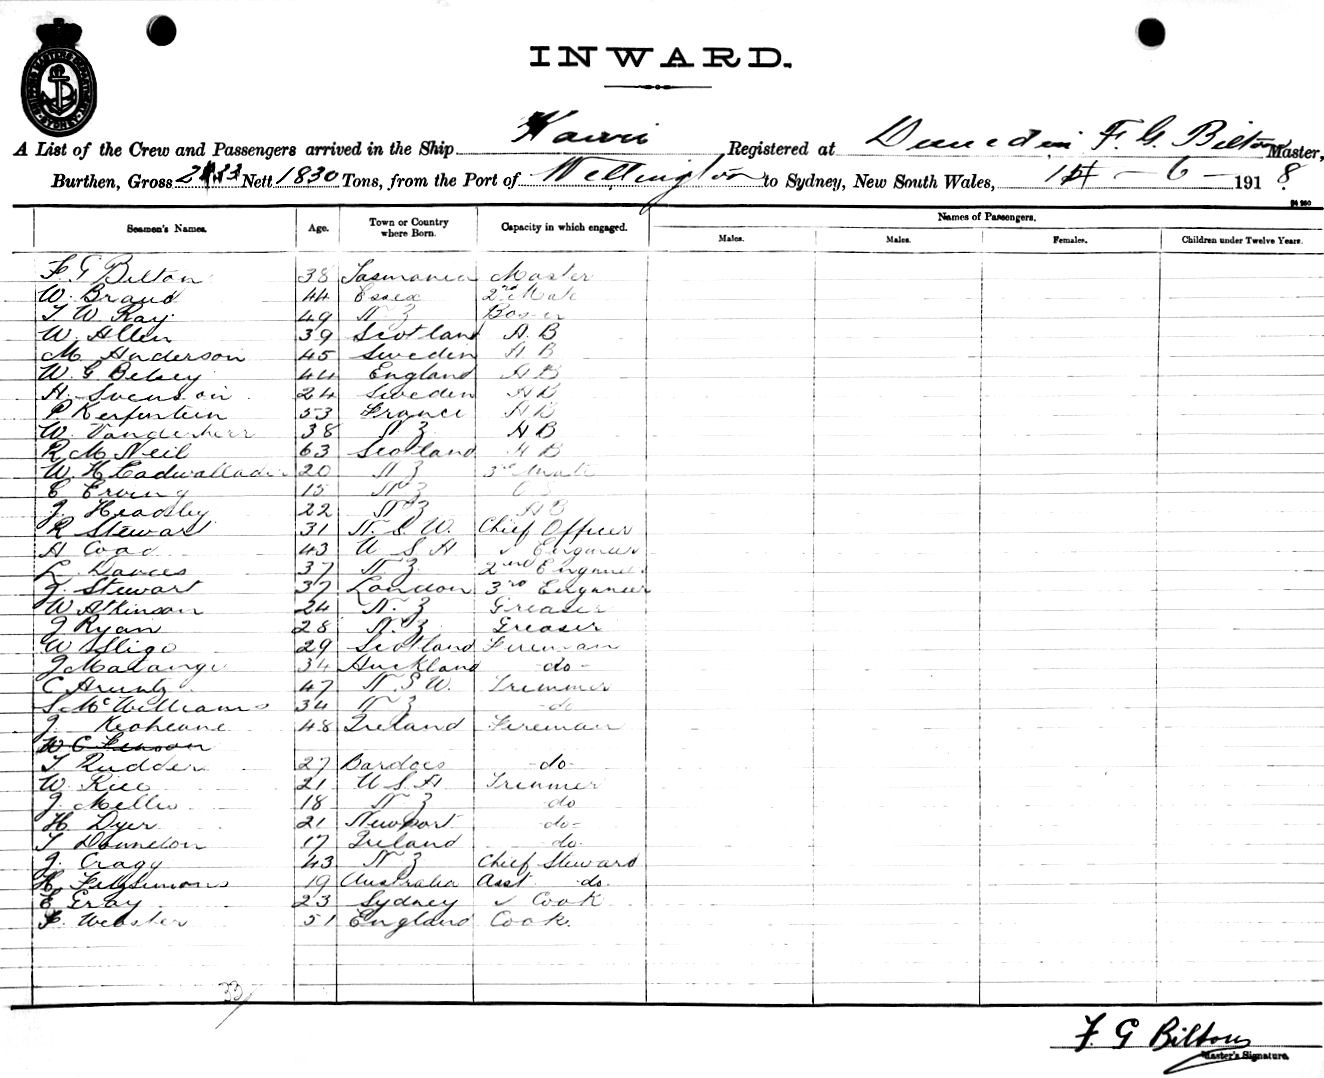 INWARD.
A List of the Crew and Passengers arrived in the Ship Registered at Dunedin F. G. Bilton Master,
Burthen, Gross Nett 1830 Tons, from the Port of Wellington to Sydney, New South Wales, - 6 - 1918
Names of Passengers.
Seamen's Names. Age. Town or Country where Born. Capacity in which engaged. Males. Males. Females. Children under Twelve Years.
F G Bilton 38 Tasmania Master
W. Brand 44 Essex 2nd Mate
T W Ray 49 N Z Bos'n
W. Allen 39 Scotland A B
M. Anderson 45 Sweden A B
W. G Belsey 44 England A B
H. Svenson 24 Sweden A B
P 53 France A B
W. 38 N Z A B
R McNeil 63 Scotland A B
W. H Cadwallader 20 N Z 3rd Mate
C Erving 15 N Z O S
J. Headley 22 N Z A B
R Stewart 31 N. S. W. Chief Officer
A Coad 43 U S A " Engineer
L. Davies 37 N. Z. 2nd Engineer
J. Stewart 37 London 3rd Engineer
W Atkinson 24 N. Z Greaser
J Ryan 28 N. Z Greaser
W Sligo 29 Scotland Fireman
J 34 Auckland - do -
C 47 N. S W. Trimmer
S McWilliams 34 N Z do
J. Keoheane 48 Ireland Fireman
W C
T Rudder 27 Bardoes - do -
W. Rice 21 U S A Trimmer
J. Mellis 18 N Z do
H. Dyer 21 Newport - do -
T 17 Ireland do.
J. Cragg 43 N Z Chief Steward
H. Fitzsimons 19 Australia Asst do.
E Gray 23 Sydney " Cook
F. Webster 51 England Cook.
33/
F. G Bilton
Master's Signature.